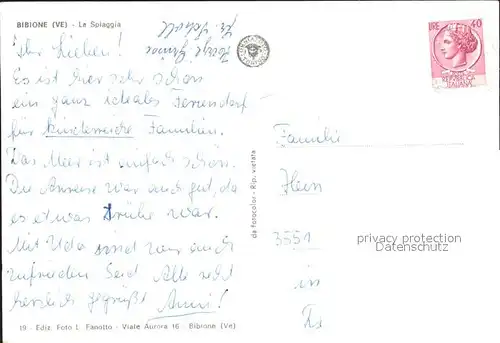 BIBIONE (VE) - La Spiaggia
Ihr Lieben!
Es ist hier sehr schön
ein ganz ideales Feriendorf
für kinderreiche Familien.
Das Meer ist einfach schön.
Die Anreise war auch gut, da
es etwas trübe war.
Mit Udo sind wir auch
zufrieden Seid Alle recht
herzlich gegrüßt Anni!
19 - Ediz. Foto L. Fanotto - Viale Aurora 16 - Bibione (Ve)
da Fotocolor - Rip. vietata
LIRE 40
REPUBBLICA
ITALIANA
Familie
Hein
3551
in
privacy protection
Datenschutz